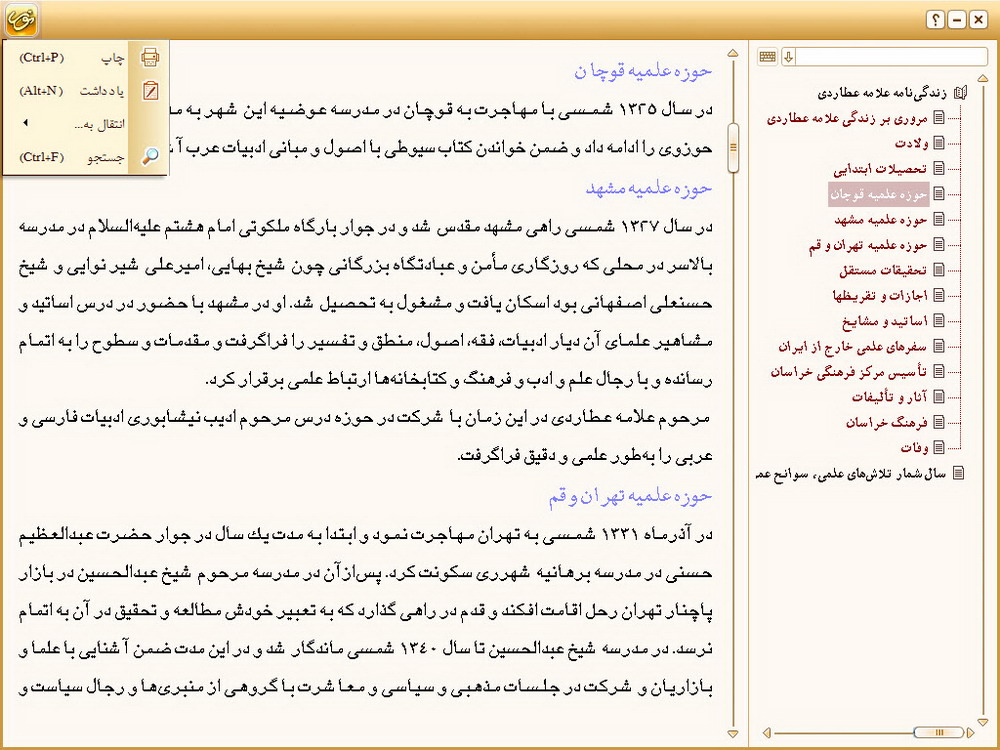 چاپ (Ctrl+P)
یادداشت (Alt+N)
انتقال به...
جستجو (Ctrl+F)
زندگی‌نامه علامه عطاردی
مروری بر زندگی علامه عطاردی
ولادت
تحصیلات ابتدایی
حوزه علمیه قوچان
حوزه علمیه مشهد
حوزه علمیه تهران و قم
تحقیقات مستقل
اجازات و تقریظها
اساتید و مشایخ
سفرهای علمی خارج از ایران
تأسیس مرکز فرهنگی خراسان
آثار و تألیفات
فرهنگ خراسان
وفات
سال‌شمار تلاش‌های علمی، سوانح
حوزه علمیه قوچان
در سال ۱۳۲۵ شمسی با مهاجرت به قوچان در مدرسه عوضیه این شهر به
حوزوی را ادامه داد و ضمن خواندن کتاب سیوطی با اصول و مبانی ادبیات عرب
حوزه علمیه مشهد
در سال ۱۳۲۷ شمسی راهی مشهد مقدس شد و در جوار بارگاه ملکوتی امام هشتم علیه‌السلام در مدرسه
بالاسر در محلی که روزگاری مأمن و عبادتگاه بزرگانی چون شیخ بهایی، امیرعلی شیر نوایی و شیخ
حسنعلی اصفهانی بود اسکان یافت و مشغول به تحصیل شد. او در مشهد با حضور در درس اساتید و
مشاهیر علمای آن دیار ادبیات، فقه، اصول، منطق و تفسیر را فراگرفت و مقدمات و سطوح را به اتمام
رسانده و با رجال علم و ادب و فرهنگ و کتابخانه‌ها ارتباط علمی برقرار کرد.
مرحوم علامه عطاردی در این زمان با شرکت در حوزه درس مرحوم ادیب نیشابوری ادبیات فارسی و
عربی را به‌طور علمی و دقیق فراگرفت.
حوزه علمیه تهران و قم
در آذرماه ۱۳۳۱ شمسی به تهران مهاجرت نمود و ابتدا به مدت یك سال در جوار حضرت عبدالعظیم
حسنی در مدرسه برهانیه شهرری سکونت کرد. پس‌ازآن در مدرسه مرحوم شیخ عبدالحسین در بازار
پاچنار تهران رحل اقامت افکند و قدم در راهی گذارد که به تعبیر خودش مطالعه و تحقیق در آن به اتمام
نرسد. در مدرسه شیخ عبدالحسین تا سال ۱۳٤۰ شمسی ماندگار شد و در این مدت ضمن آشنایی با علما و
بازاریان و شرکت در جلسات مذهبی و سیاسی و معاشرت با گروهی از منبری‌ها و رجال سیاست و